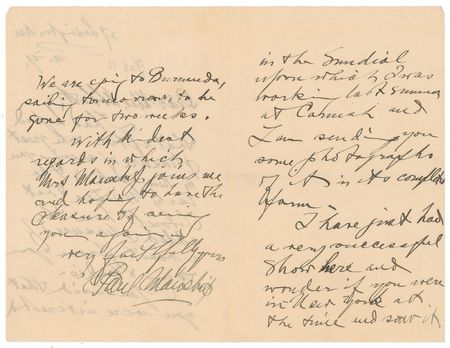 in the Sundial
upon which I was
workin last summer
at Cornish and
I am sendin you
some photographs
of it in its complete
form.
I have just had
a very successful
show here and
wonder if you were
in New York at
the time and saw it.
We are going to Bermuda,
sailing tomorrow, to be
gone for two weeks.
With kindest
regards in which
Mrs Manship joins me
and hoping to have the
pleasure of seeing
you again
very faithfully yours
Paul Manship